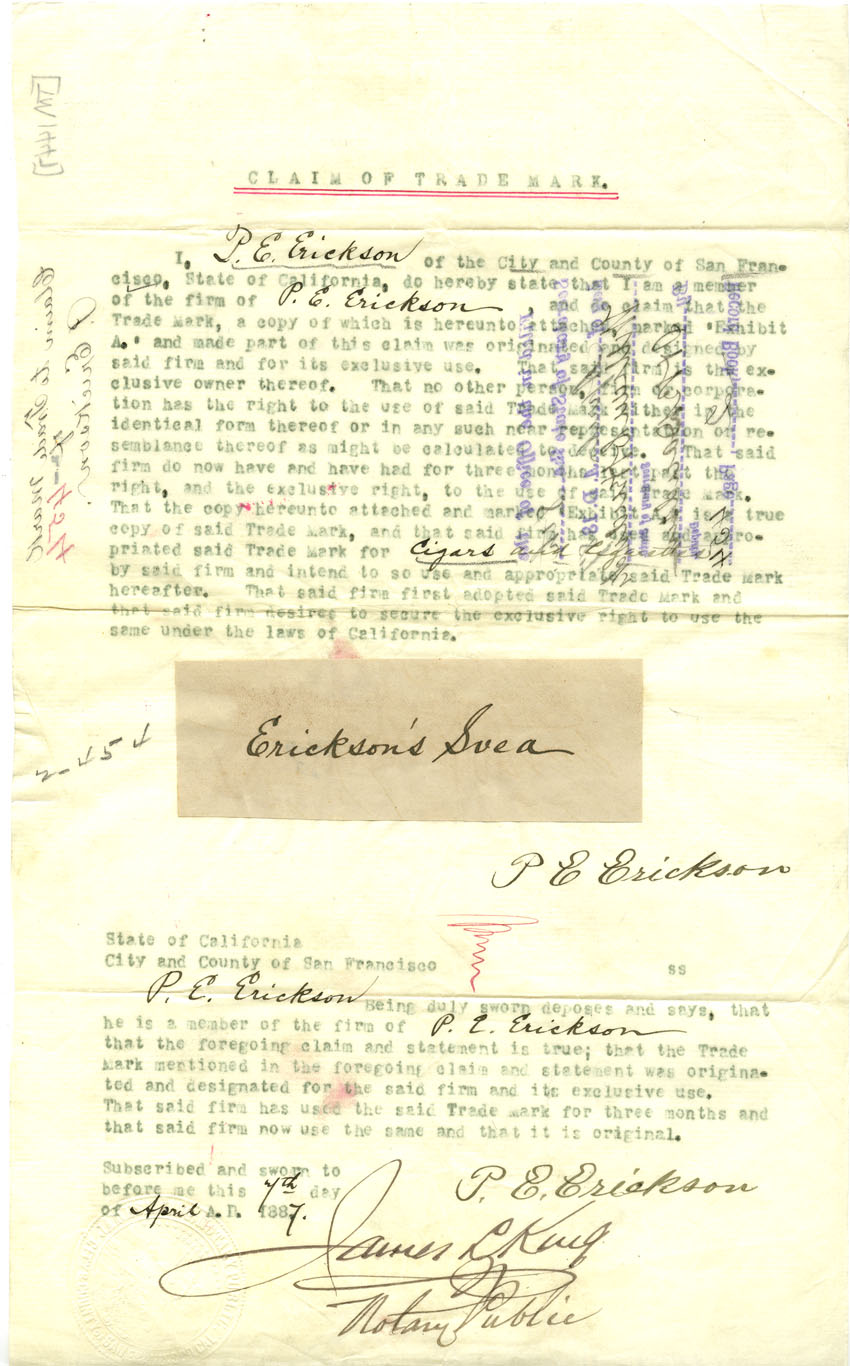 CLAIM OF TRADE MARK.
I, P. E. Erickson of the City and County of San Fran-
cisco, State of California, do hereby state that I am a member
of the firm of P. E. Erickson, and do claim that the
Trade Mark, a copy of which is hereunto attached, marked "Exhibit
A." and made part of this claim was originated and designed by
said firm and for its exclusive use. That said firm is the ex-
clusive owner thereof. That no other person, firm or corpora-
tion has the right to the use of said Trade Mark either in the
identical form thereof or in any such near representation or re-
semblance thereof as might be calculated to deceive. That said
firm do now have and have had for three months last past the
right, and the exclusive right, to the use of said Trade Mark.
That the copy hereunto attached and marked Exhibit A, is a true
copy of said Trade Mark, and that said firm has used and appro-
priated said Trade Mark for Cigars and
by said firm and intend to so use and appropriate said Trade Mark
hereafter. That said firm first adopted said Trade Mark and
that said firm desires to secure the exclusive right to use the
same under the laws of California.
Erickson's Svea
P E Erickson
State of California
City and County of San Francisco ss
P. E. Erickson Being duly sworn deposes and says, that
he is a member of the firm of P. E. Erickson
that the foregoing claim and statement is true; that the Trade
Mark mentioned in the foregoing claim and statement was origina-
ted and designated for the said firm and its exclusive use.
That said firm has used the said Trade Mark for three months and
that said firm now use the same and that it is original.
Subscribed and sworn to
before me this 7th day
of April A.D. 1887.
P. E. Erickson
James L King
Notary Public